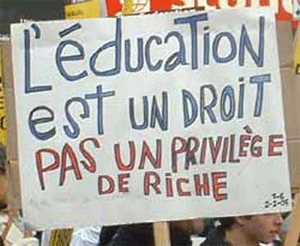 L'éducation
est UN DROIT
PAS UN PRIVILÈGE
DE RICHE